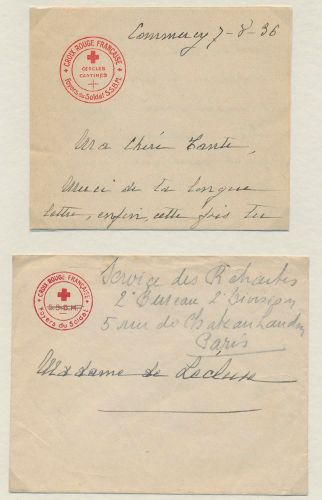 Commercy 7-8-36
CROIX ROUGE FRANÇAISE
CERCLES
CANTINES
Foyers du Soldat S.S.B.M.
Ma Chère Tante,
Merci de ta longue
lettre, enfin, cette fois tu
CROIX ROUGE FRANÇAISE
S.S.B.M.
Foyers du Soldat
Service des Retraites
2e Bureau 2e Division
5 rue de Chateaulandon
Paris
Madame de